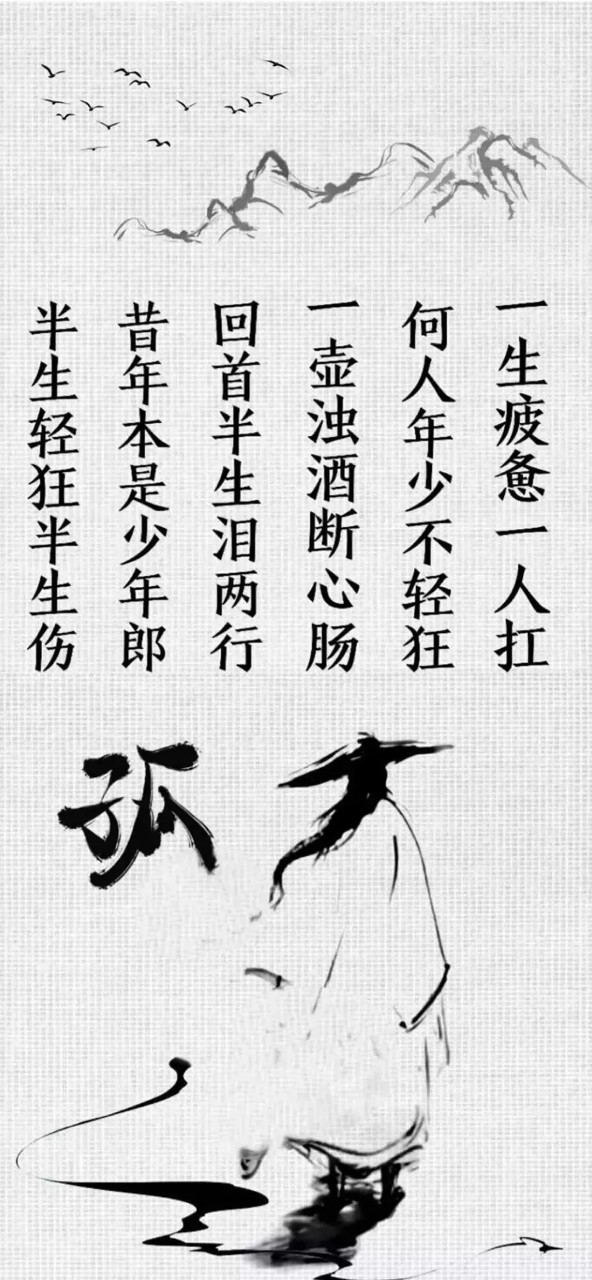 一生疲惫一人扛
何人年少不轻狂
一壶浊酒断心肠
回首半生泪两行
昔年本是少年郎
半生轻狂半生伤
孤